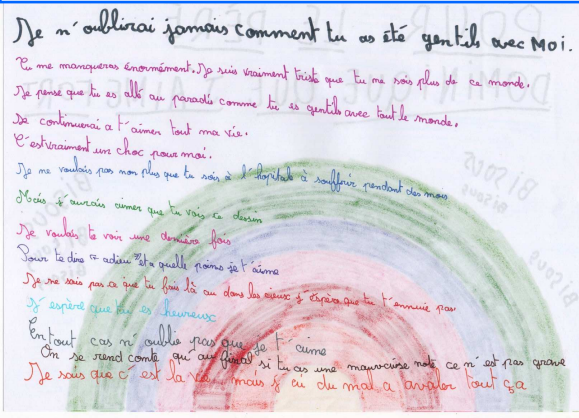 Je n'oublirai jamais comment tu as été gentils avec Moi.
Tu me manqueras énormément. Je suis vraiment triste que tu me sois plus de ce monde.
Je pense que tu es allé au paradis comme tu es gentils avec tout le monde.
Je continuerai a t'aimer tout ma vie.
C'est vraiment un choc pour moi.
Je ne voulais pas non plus que tu sois à l'hopitale à souffrir pendant des mois
Mais j'aurais aimer que tu vois ce dessin
Je voulais te voir une derniere fois
Pour te dire adieu et a quelle poins je t'aime
Je ne sais pas ce que tu fais là au dans les cieux j'éspère que tu t'ennuie pas
J'espère que tu es heureux
En tout cas n'oublie pas que je t'aime
On se rend conte qu'au final si tu as une mauvaise note ce n'est pas grave
Je sais que c'est la vie mais j'ai du mal a avaler tout ça
Bisous
Bisous
Bisous
Bisous